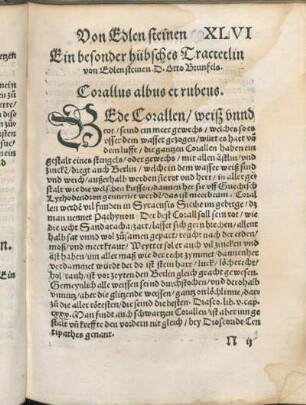 Von Edlen steinen XLVI
Ein besonder hübsches Tractetlin
von Edlen steinen D. Otto Brunfels.
Corallus albus et rubens.
BEde Corallen / weiß vnnd
rot / seind ein meer gewechs / welches so es
vsser dem wasser gezogen / würt es hart vō
dem lufft / die gantzen Corallen haben ein
gestalt eines stengels / oder gewechs / mit allen ästlin / vnd
zincken / tregt auch Berlin / welche in dem wasser weiß sind
vnd weich / ausserhalb herter vnd rot / in aller
gestalt wie die welschen kirssen / dannen her sie vff Griechisch
Lythodendron genennet werdē / das ist meerbeum. Corallen
werdē vil funden in Syracusis Sicilie im gebirge /
man nennet Pachynon. Der best Corall soll sein rot / wie
die recht Sandaracha / zart / lasset sich gern brechen / allent
halb satt vnd wol zůsamen gepart / reücht nach der erden
moß / vnd meerkraut / Weytter soll er auch vil zincken vnd
äst haben / vm aller maß wie der recht zymmet / dannen her
verdammet würdt der do ist stein hart / luck / löcherecht /
hol / rauh / ist vor zeyten den Berlin gleich geacht gewesen.
Gemeynlich alle weissen seind duchstochen / vnd derohalb
vnnütz / aber die glitzenden weissen / gantz on löcherlin /
zů die aller rötesten / die seind die besten. Diasco. lib. v. cap.
xxxx. Man findt auch schwartzen Corallen / ist aber inn ge
stalt vn̄ krefften den vordern nit gleich / bey Dioscoride
genant.
n.
Ein